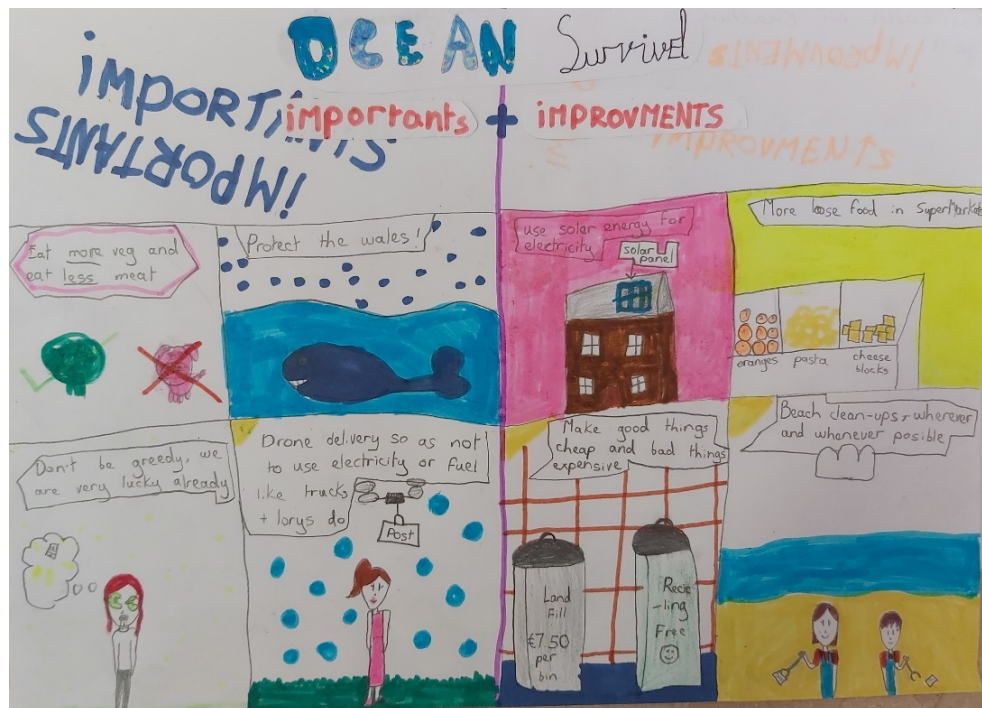 OCEAN Survivel
iMPORTANTS
iMPORTANTS
importants + iMPROVMENTS
iMPROVMENTS
IMPROVMENTS
Eat more veg and
eat less meat
Protect the wales!
use solar energy for
electricity
solar
panel
More loose food in SuperMarkets
oranges
pasta
cheese
blocks
Don't be greedy, we
are very lucky already
Drone delivery so as not
to use electricity or fuel
like trucks
+ lorys do
Post
Make good things
cheap and bad things
expensive
Land
Fill
€7.50
per
bin
Recic
-ling
Free
Beach clean-ups, wherever
and whanever posible